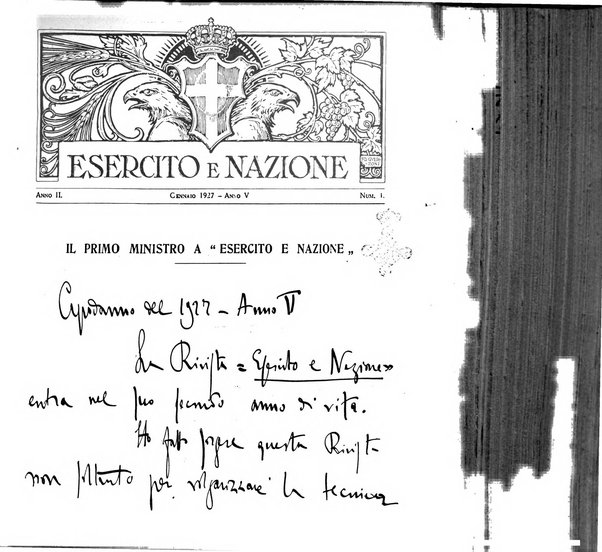 ESERCITO E NAZIONE
ANNO II. GENNAIO 1927 - ANNO V NUM. 1.
IL PRIMO MINISTRO A “ ESERCITO E NAZIONE „
Capodanno del 1927 - Anno V
La Rivista = Esercito e Nazione»
entra nel suo secondo anno di vita.
Ho fatto sorgere questa Rivista
non soltanto per volgarizzare la tecnica